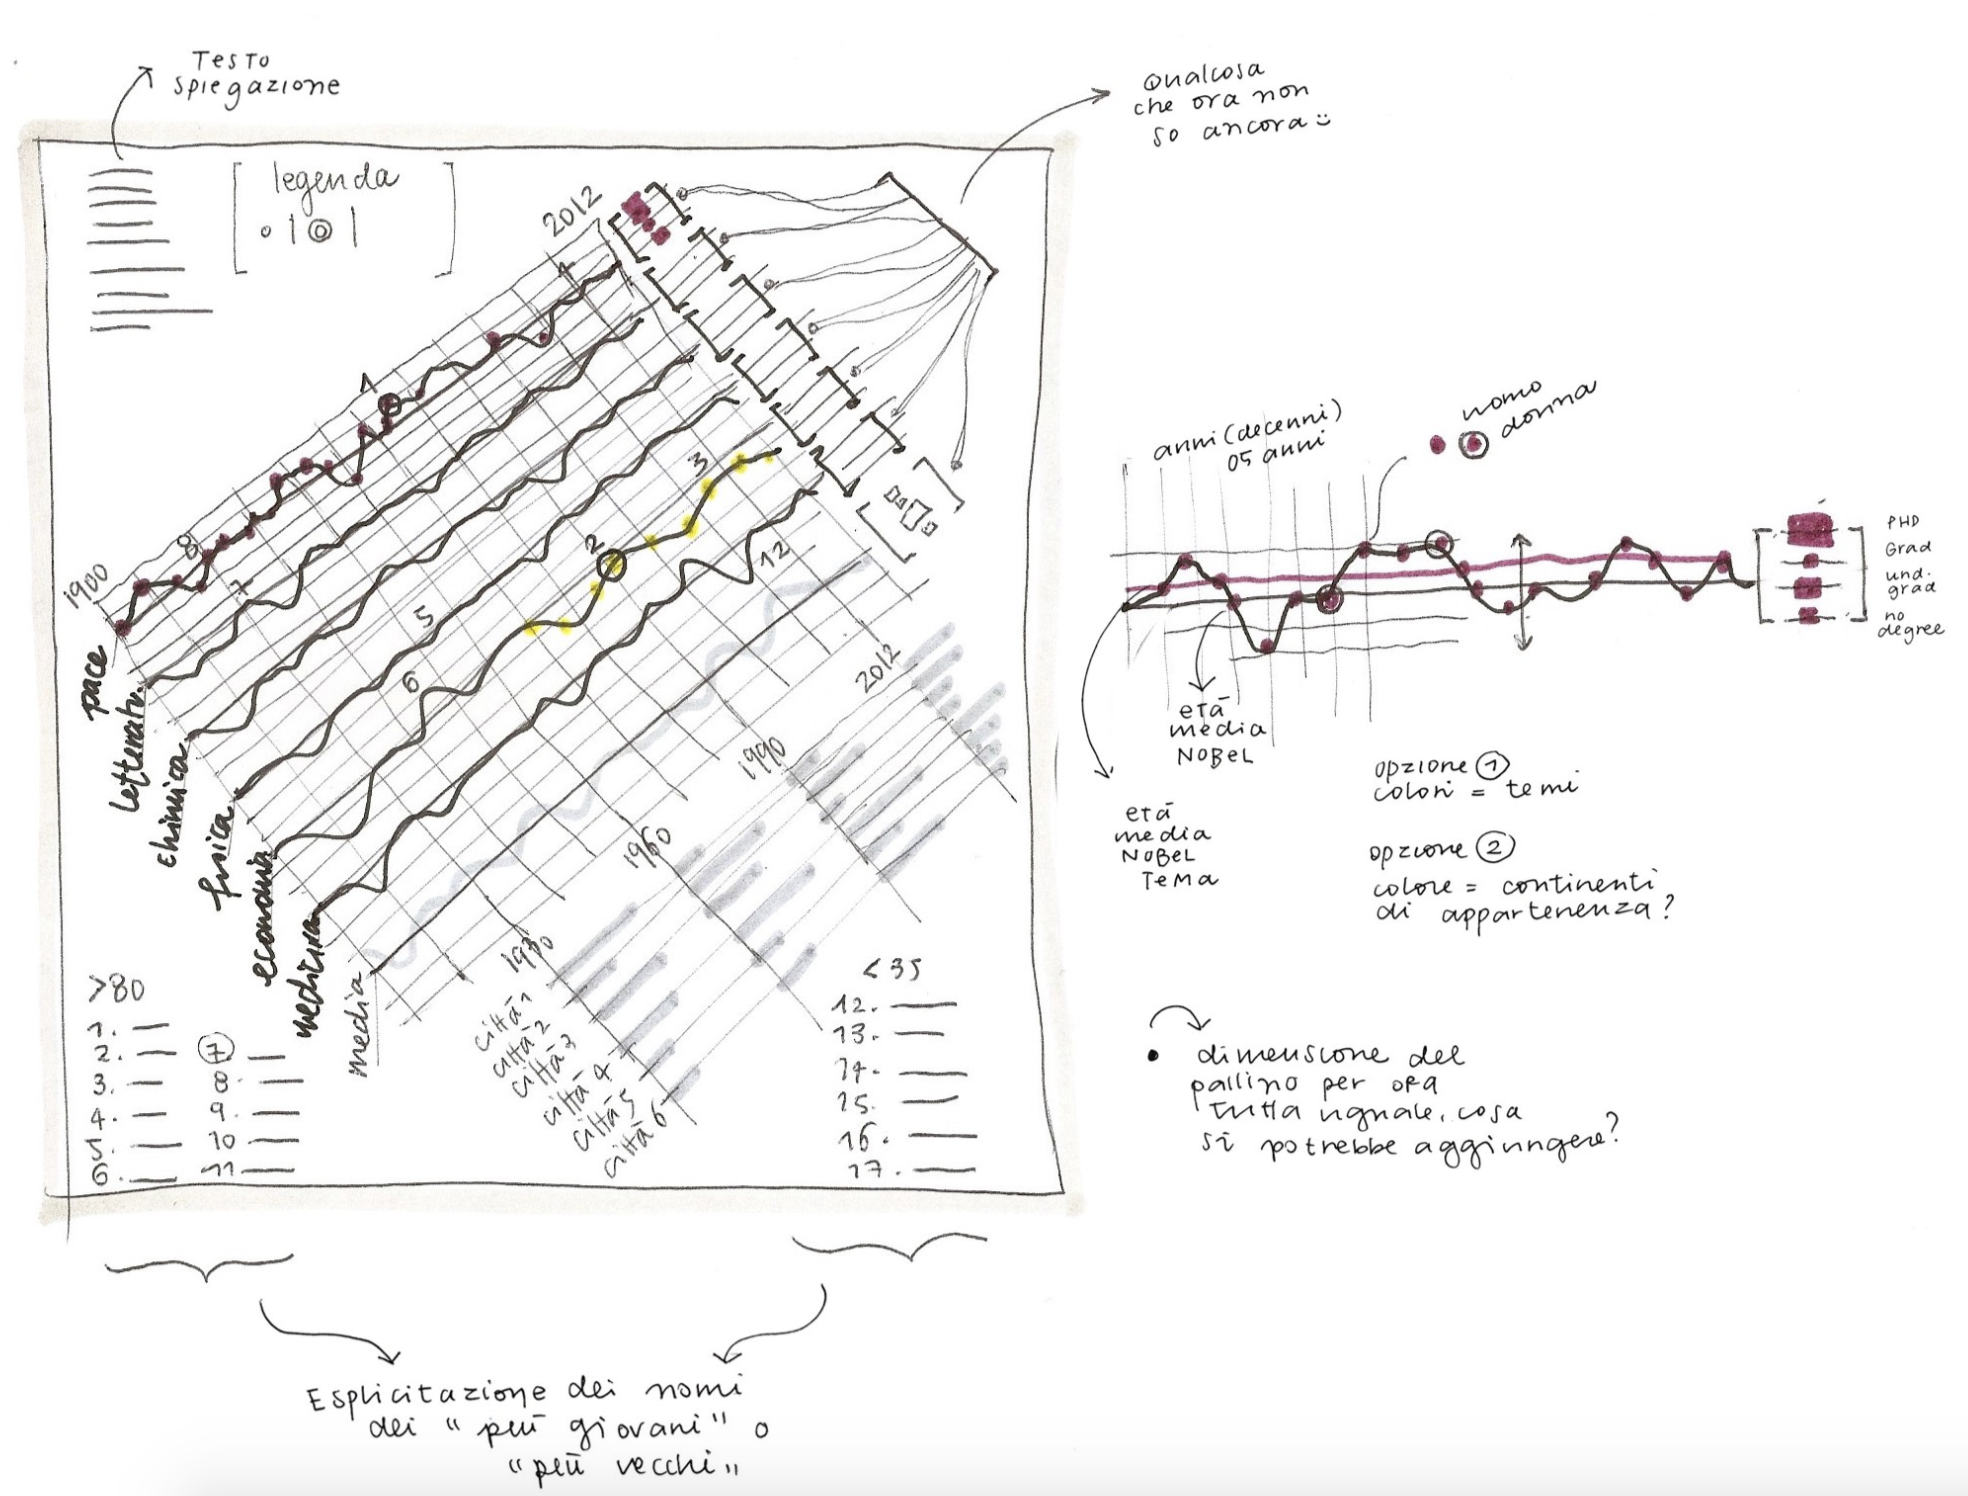 Testo
spiegazione
Qualcosa
che ora non
so ancora
legenda
2012
1900
1
1
8
7
5
6
2
3
12
pace
letteratu.
chimica
fisica
economia
medicina
media
2012
1990
1960
1930
città 1
città 2
città 3
città 4
città 5
città 6
>80
1.
2.
3.
4.
5.
6.
7
8.
9.
10
11
<35
12.
13.
14.
15.
16.
17.
Esplicitazione dei nomi
dei "più giovani" o
"più vecchi"
anni (decenni)
05 anni
uomo
donna
PHD
Grad
und.
grad
no
degree
età
media
NOBEL
età
media
NOBEL
TEMA
opzione 1
colori = temi
opzione 2
colore = continenti
di appartenenza?
dimensione del
pallino per ora
tutta uguale, cosa
si potrebbe aggiungere?